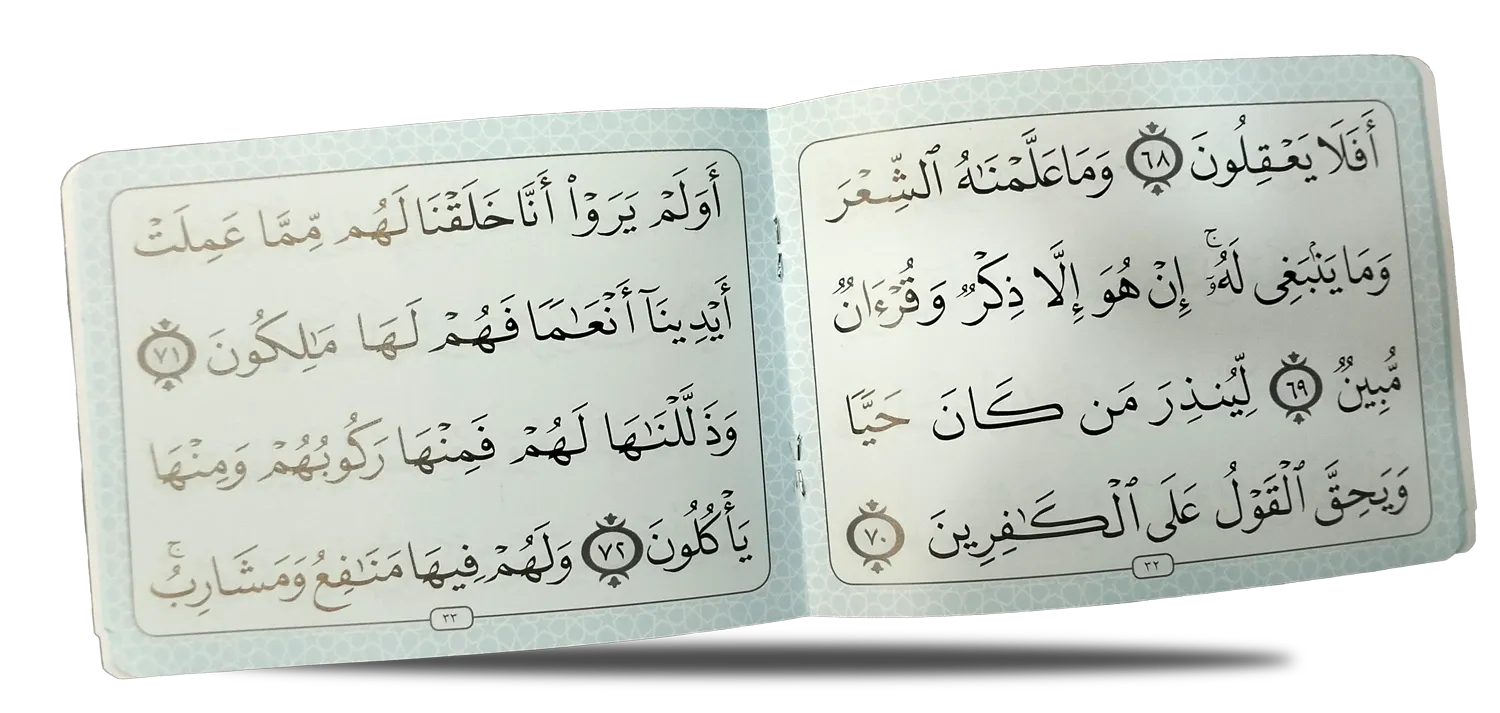 أَفَلَا يَعۡقِلُونَ ٦٨ وَمَا عَلَّمۡنَٰهُ ٱلشِّعۡرَ
وَمَا يَنۢبَغِى لَهُۥٓۚ إِنۡ هُوَ إِلَّا ذِكۡرٞ وَقُرۡءَانٞ
مُّبِينٞ ٦٩ لِّيُنذِرَ مَن كَانَ حَيّٗا
وَيَحِقَّ ٱلۡقَوۡلُ عَلَى ٱلۡكَٰفِرِينَ ٧٠
٣٢
أَوَلَمۡ يَرَوۡاْ أَنَّا خَلَقۡنَا لَهُم مِّمَّا عَمِلَتۡ
أَيۡدِينَآ أَنۡعَٰمٗا فَهُمۡ لَهَا مَٰلِكُونَ ٧١
وَذَلَّلۡنَٰهَا لَهُمۡ فَمِنۡهَا رَكُوبُهُمۡ وَمِنۡهَا
يَأۡكُلُونَ ٧٢ وَلَهُمۡ فِيهَا مَنَٰفِعُ وَمَشَارِبُۚ
٣٣